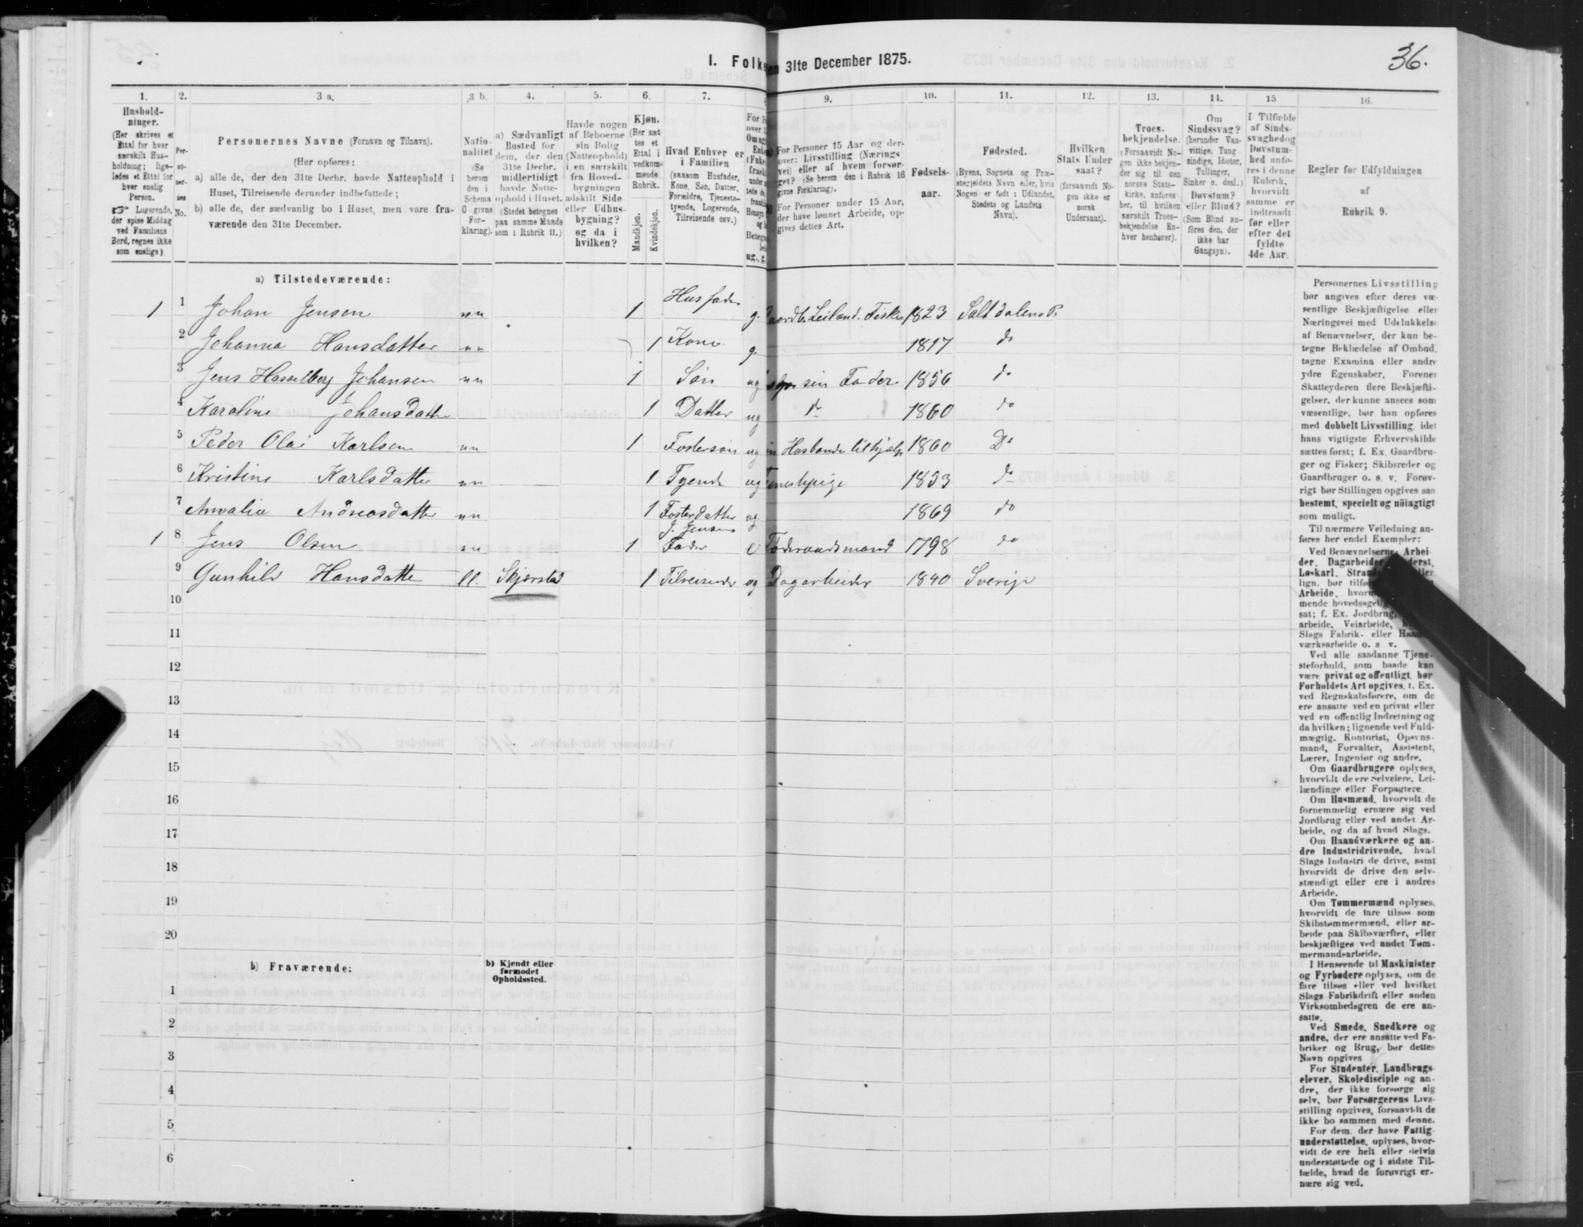 36.
1. Folke
en 31te December 1875.
1. 2. 3 a. 3 b. 4. 5. 6. 7. 9. 10. 11. 12. 13. 14. 15 16.
Hushold-
ninger.
(Her skrives et
Ettal for hver
særskilt Hus-
holdning; lige-
ledes et Ettal for
hver enslig
Person.
☞ Logerende,
der spise Middag
ved Familiens
Bord, regnes ikke
som enslige).
Per-
so-
ner-
nes
No.
Personernes Navne (Fornavn og Tilnavn).
(Her opføres:
a) alle de, der den 31te Decbr. havde Natteophold i
Huset, Tilreisende derunder indbefattede;
b) alle de, der sædvanlig bo i Huset, men vare fra-
værende den 31te December.
Natio-
nalitet
(Se
herom
den i
Schema
O givne
For-
klaring).
a) Sædvanligt
Bosted for
dem, der den
31te Decbr.
midlertidigt
havde Natte-
ophold i Huset.
(Stedet betegnes
paa samme Maade
som i Rubrik 11.)
Havde nogen
af Beboerne
sin Bolig
(Natteophold)
i en særskilt
fra Hoved-
bygningen
adskilt Side
eller Udhus-
bygning?
og da i
hvilken?
Kjøn.
(Her sæt-
tes et
Ettal i
vedkom-
mende
Rubrik.
Mandkjøn.
Kvindekjøn.
Hvad Enhver er
i Familien
(saasom Husfader,
Kone, Søn, Datter,
Forældre, Tjeneste-
tyende, Logerende,
Tilreisende osv.)
For Personer 15 Aar og der-
over: Livsstilling (Nærings
vei) eller af hvem forsør-
get? (Se herom den i Rubrik 16
givne Forklaring).
For Personer under 15 Aar,
der have lønnet Arbeide, op-
gives dettes Art.
Fødsels-
aar.
Fødested.
(Byens, Sognets og Præ-
stegjeldets Navn eller, hvis
Nogen er født i Udlandet,
Stedets og Landets
Navn).
Hvilken
Stats Under
saat?
(forsaavidt No-
gen ikke er
norsk
Undersaat).
Troes-
bekjendelse.
(Forsaavidt No-
gen ikke bekjen-
der sig til den
norske Stats-
kirke, anføres
her, til hvilken
særskilt Troes-
bekjendelse En-
hver henhører).
Om
Sindssvag?
(herunder Van-
vittige, Tung-
sindige, Idioter,
Tullinger,
Sinker o. desl.)
Døvstum?
eller Blind?
(Som Blind an-
føres den, der
ikke har
Gangsyn).
I Tilfælde
af Sinds-
svaghed og
Døvstum-
hed anfø-
res i denne
Rubrik,
hvorvidt
samme er
indtraadt
før eller
efter det
fyldte
4de Aar.
Regler for Udfyldningen
af
Rubrik 9.
a) Tilstedeværende:
1 1 Johan Jensen nn 1 Husfader g. Gaardb. Leiland. Fisker 1823 Saltdalens P.
2 Johanna Hansdatter nn 1 Kone g. 1817 do
3 Jens Hasselberg Johansen nn 1 Søn ug sin Fader 1856 do
4 Karoline Johansdatter 1 Datter ug do 1860 do
5 Peder Olai Karlsen nn 1 Fostersøn ug Husbonde tilhjelp 1860 Do
6 Kristine Karlsdatter nn 1 Tyende ug Tienestepige 1853 do
7 Amalia Andreasdatter nn 1 Fosterdatter ug 1869 do
1 8 Jens Olsen nn 1 J. Jensens Fader e Føderaadsmand 1798 do
9 Gunhild Hansdatte ll. Skjerstad 1 Tilreisende ug Dagarbeider 1840 Sverige
10
11
12
13
14
15
16
17
18
19
20
b) Fraværende:
b) Kjendt eller
formodet
Opholdssted.
1
2
3
4
5
6
Personernes Livsstilling
bør angives efter deres væ-
sentlige Beskjæftigelse eller
Næringsvei med Udelukkelse
af Benævnelser, der kun be-
tegne Beklædelse af Ombud,
tagne Examina eller andre
ydre Egenskaber. Forener
Skatteyderen flere Beskjæfti-
gelser, der kunne ansees som
væsentlige, bør han opføres
med dobbelt Livsstilling, idet
hans vigtigste Erhvervskilde
sættes først; f. Ex. Gaardbru-
ger og Fisker; Skibsreder og
Gaardbruger o. s. v. Forøv-
rigt bør Stillingen opgives saa
bestemt, specielt og nøiagtigt
som muligt.
Til nærmere Veiledning an-
føres her endel Exempler:
Ved Benævnelserne Arbei-
der, Dagarbeider
Løskarl, Strand
lign. bør
Arbeide, hvor
mende hovedsagelig
sat; f. Ex. Jordbrug
arbeide, Veiarbeide,
Slags Fabrik- eller Haand-
værksarbeide o. s. v.
Ved alle saadanne Tjene-
steforhold, som baade kan
være privat og offentligt, bør
Forholdets Art opgives, t. Ex.
ved Regnskabsførere, om de
ere ansatte ved en privat eller
ved en offentlig Indretning og
da hvilken; lignende ved Fuld-
mægtig, Kontorist, Opsyns-
mand, Forvalter, Assistent,
Lærer, Ingeniør og andre.
Om Gaardbrugere oplyses,
hvorvidt de ere Selveiere, Lei-
lændinge eller Forpagtere.
Om Husmænd, hvorvidt de
fornemmelig ernære sig ved
Jordbrug eller ved andet Ar-
beide, og da af hvad Slags.
Om Haandværkere og an-
dre Industridrivende, hvad
Slags Industri de drive, samt
hvorvidt de drive den selv-
stændigt eller ere i andres
Arbeide.
Om Tømmermænd oplyses,
hvorvidt de fare tilsøs som
Skibstømmermænd, eller ar-
beide paa Skibsværfter, eller
beskjæftiges ved andet Tøm-
mermandsarbeide.
I Henseende til Maskinister
og Fyrbødere oplyses, om de
fare tilsøs eller ved hvilket
Slags Fabrikdrift eller anden
Virksomhedsgren de ere an-
satte.
Ved Smede, Snedkere og
andre, der ere ansatte ved Fa-
briker og Brug, bør dettes
Navn opgives
For Studenter, Landbrugs-
elever, Skoledisciple og an-
dre, der ikke forsørge sig
selv, bør Forsørgerens Livs-
stilling opgives, forsaavidt de
ikke bo sammen med denne.
For dem, der have Fattig-
understøttelse, oplyses, hvor-
vidt de ere helt eller delvis
understøttede og i sidste Til-
fælde, hvad de forøvrigt er-
nære sig ved.